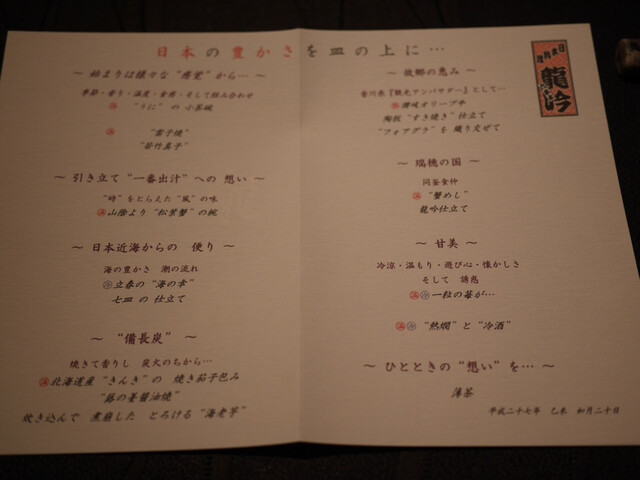 日本の豊かさを皿の上に…
～ 始まりは様々な“感覚”から… ～
季節・香り・温度・食感・そして組み合わせ
“うに” の 小茶碗
“雲子焼”
“若竹真子”
～ 引き立て“一番出汁”への 想い ～
“時”をとらえた“風”の味
山陰より“松葉蟹”の椀
～ 日本近海からの 便り ～
海の豊かさ 潮の流れ
立春の“海の幸”
七皿 の 仕立て
～ “備長炭” ～
焼きて香りし 炭火のちから…
北海道産“きんき”の 焼き茄子包み
“蕗の薹醤油焼”
炊き込んで 煮崩した とろける“海老芋”
日本料理 龍吟
～ 故郷の恵み ～
香川県『観光アンバサダー』として…
讃岐オリーブ牛
“すき焼き”仕立て
“フォアグラ”を 織り交ぜて
～ 瑞穂の国 ～
同釜食仲
“蟹めし”
龍吟仕立て
～ 甘美 ～
冷涼・温もり・遊び心・懐かしさ
そして 誘惑
一粒の苺が…
“熱燗”と“冷酒”
～ ひとときの“想い”を… ～
薄茶
平成二十七年 乙未 如月二十日